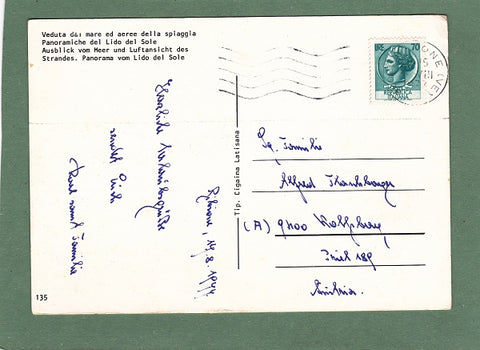 Veduta dal mare ed aeree della spiaggia
Panoramiche del Lido del Sole
Ausblick vom Meer und Luftansicht des
Strandes. Panorama vom Lido del Sole
LIRE 70
IONE (VE)
Bibione, 19.8.1977
Herzliche Urlaubsgrüße
sendet Euch
samt Familie
Tip. Cigaina Latisana
Fam. Familie
Alfred
(A) 9400 Wolfsberg
189
Austria.
135